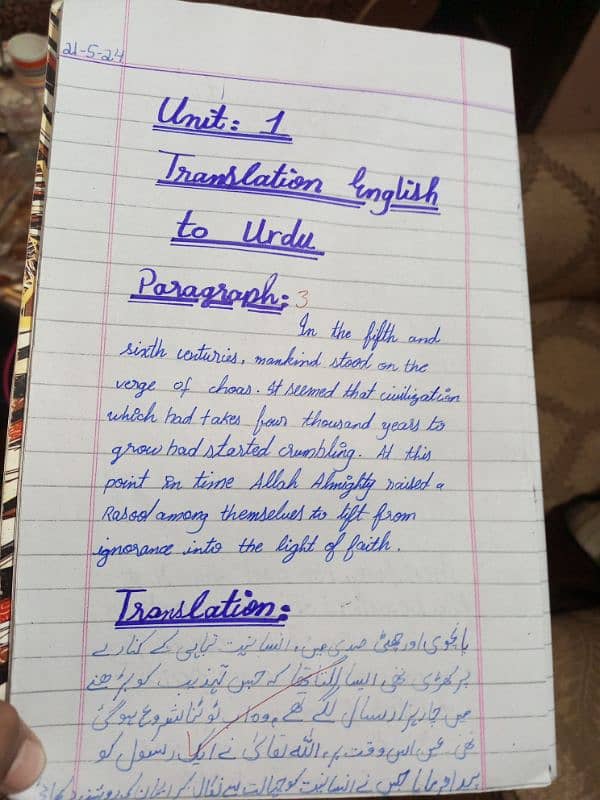 21-5-24
Unit: 1
Translation English
to Urdu
Paragraph: 3
In the fifth and
sixth centuries, mankind stood on the
verge of choas. It seemed that civilization
which had takes four thousand years to
grow had started crumbling. At this
point in time Allah Almighty raised a
Rasool among themselves to lift from
ignorance into the light of faith.
Translation:
پانچویں اور چھٹی صدی میں، انسانیت تباہی کے کنارے
پر کھڑی تھی ایسا لگتا تھا کہ جس تہذیب کو بڑھنے
میں چار ہزار سال لگے تھے وہ اب ٹوٹنا شروع ہو گئی
تھی، میں اس وقت پر، اللہ تعالیٰ نے ایک رسول کو
پیدا فرمایا جس نے انسانیت کو جہالت سے نکال کر ایمان کی